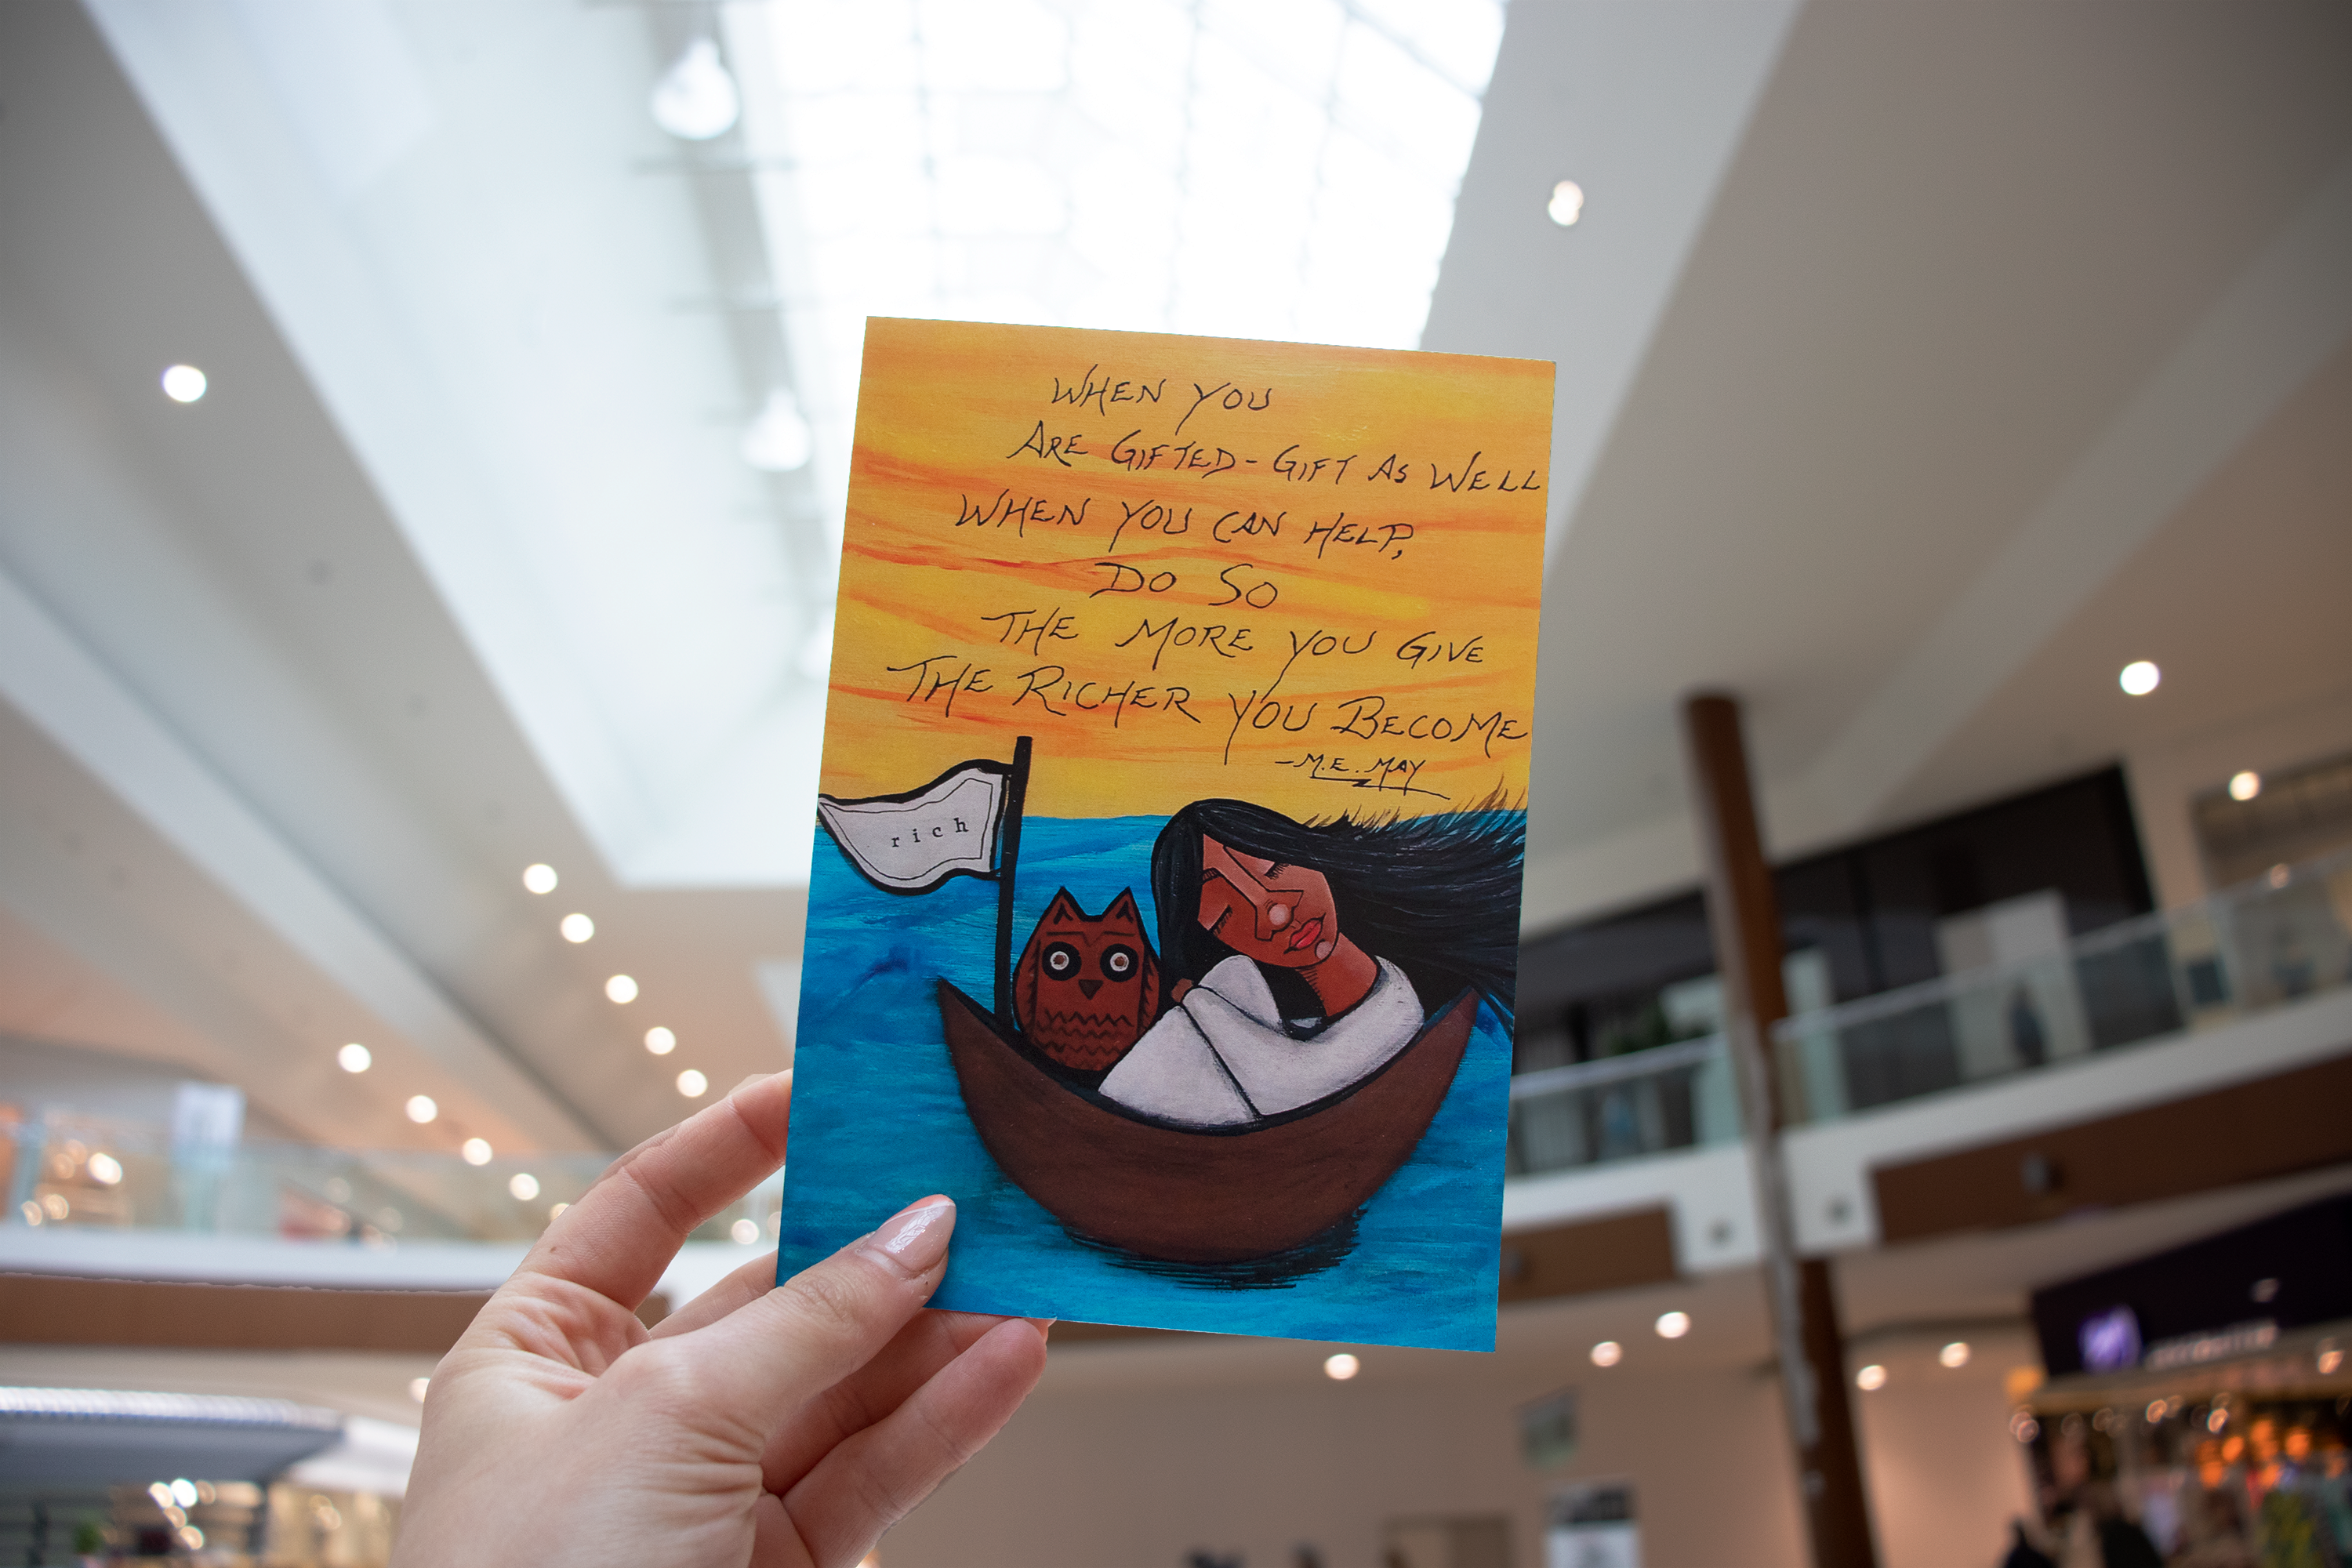 WHEN YOU
ARE GIFTED - GIFT AS WELL
WHEN YOU CAN HELP,
DO SO
THE MORE YOU GIVE
THE RICHER YOU BECOME
- M.E. MAY
rich